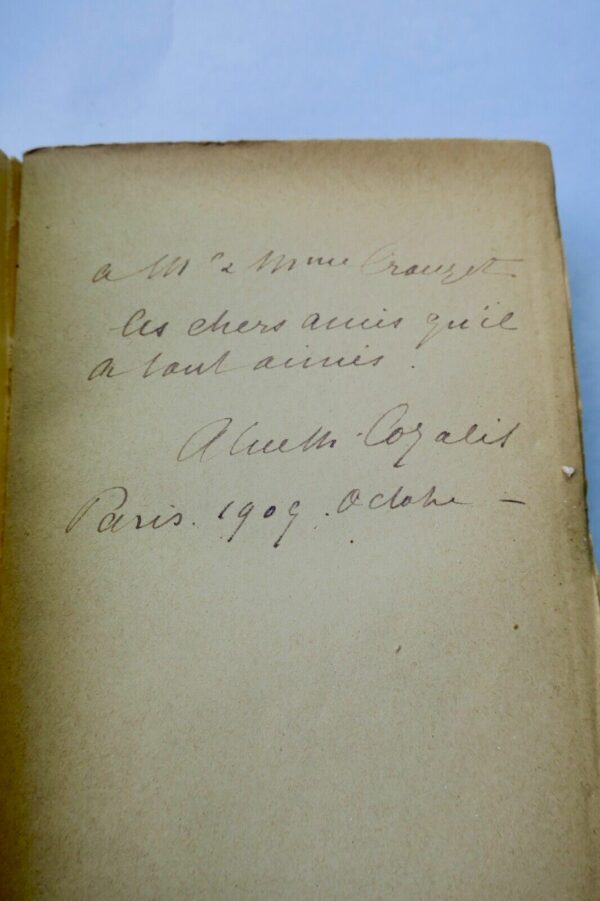 a Mr & Mme Crouzet
les chers amis qu'il
a tant aimés.
Cazalis
Paris. 1909. Octobre –